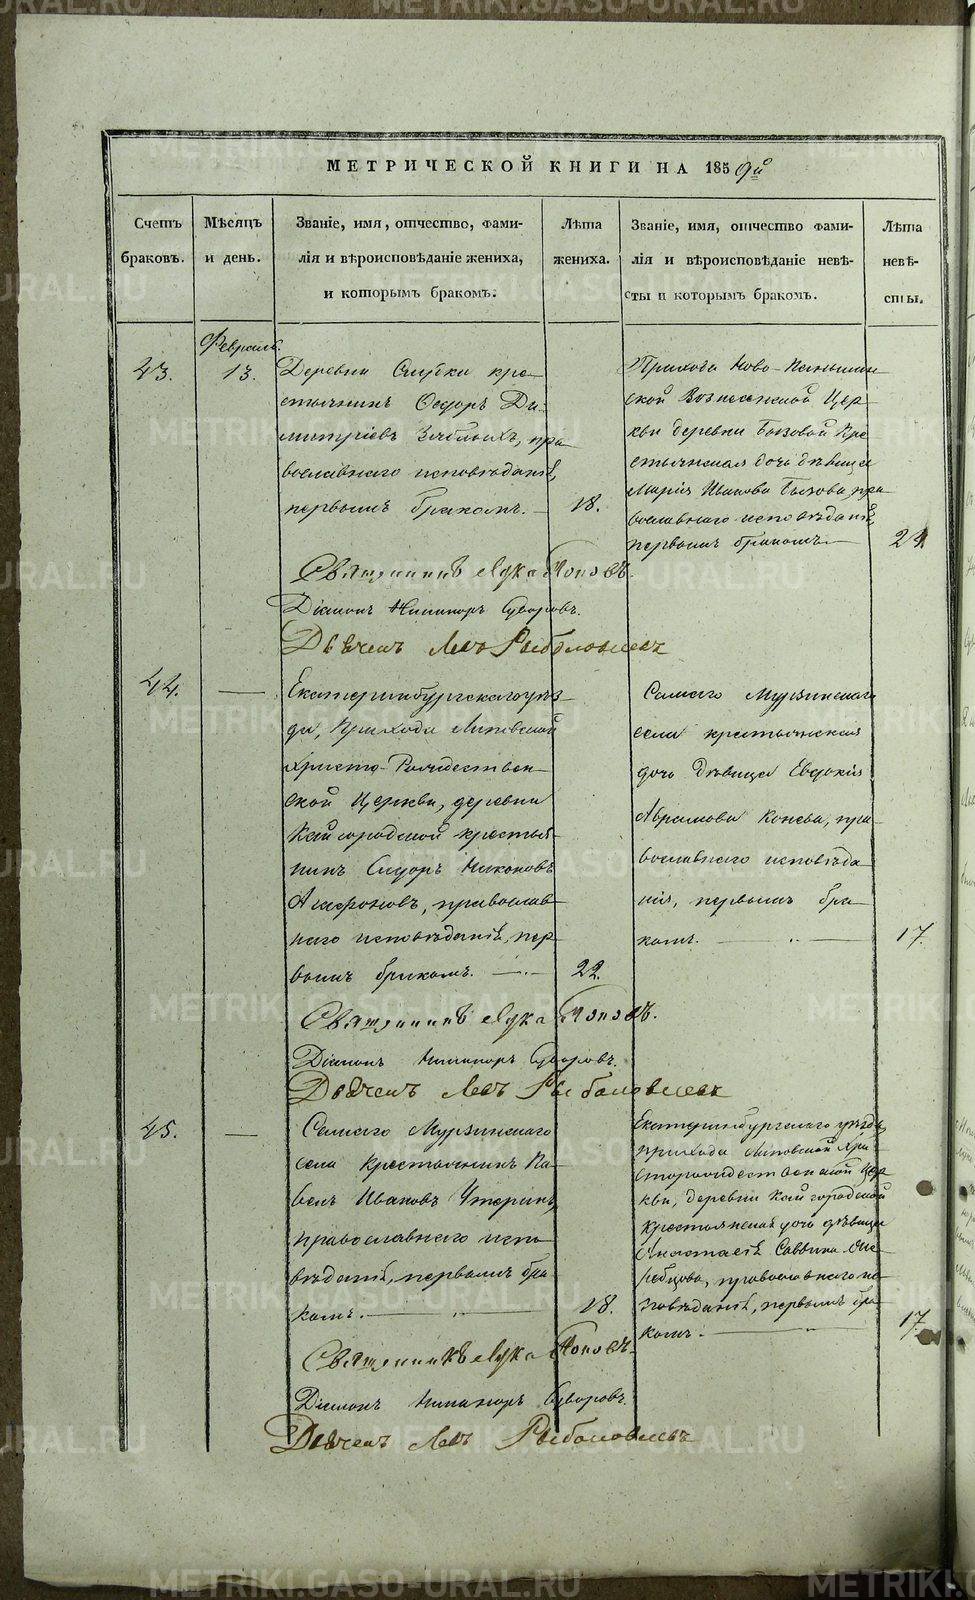 METRIKI.GASO-URAL.RU
МЕТРИЧЕСКОЙ КНИГИ НА 1859й
Счетъ браковъ.
Мѣсяцъ и день.
Званіе, имя, отчество, фами-
лія и вѣроисповѣданіе жениха,
и которымъ бракомъ.
Лѣта жениха.
Званіе, имя, отчество фами-
лія и вѣроисповѣданіе невѣ-
сты и которымъ бракомъ.
Лѣта невѣ-
сты.
43.
Февраль.
13.
Деревни кре-
стьянинъ Ѳедоръ Ди-
митріевъ Зяблыхъ, пра
вославнаго исповѣданія,
первымъ бракомъ.
18.
Прихода Ново-
ской Вознесенской Цер
кви деревни Бызовой Кре
стьянская дочь дѣвица
Марія Иванова Бызова, пра
вославнаго исповѣданія,
первымъ бракомъ
21
Священникъ Лука Поповъ.
Діаконъ Никаноръ Суворовъ.
Дьячекъ Левъ Рыболовлевъ
44.
—
Екатеринбургскаго уѣз-
да, Прихода Липовской
Христо-Рождествен-
ской Церкви, деревни
Кайгородской крестья-
нинъ Сидоръ Никоновъ
православ-
наго исповѣданія, пер-
вымъ бракомъ. —
22.
Самаго Мурзинскаго
села крестьянская
дочь Дѣвица Евдокія
Абрамова Конева, пра-
вославнаго исповѣда
нія, первымъ бра-
комъ.
17.
Священникъ Лука Поповъ.
Діаконъ Никаноръ Суворовъ.
Дьячекъ Левъ Рыболовлевъ
45.
—
Самаго Мурзинскаго
села Крестьянинъ Па-
велъ Ивановъ
православнаго испо-
вѣданія, первымъ бра-
комъ.
18.
Екатеринбургскаго уѣзда,
прихода Липовской Хри-
сторождественской Цер
кви, деревни Кайгородской
Крестьянская дочь дѣвица
Анастасія Саввина
православнаго ис-
повѣданія, первымъ бра-
комъ.
17.
Священникъ Лука Поповъ.
Діаконъ Никаноръ Суворовъ.
Дьячекъ Левъ Рыболовлевъ